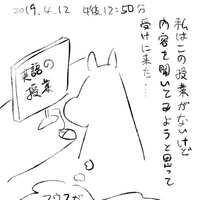 2019.4.12 午後12:50分
私はこの授業がないけど
内容を聞いてみようと思って
受けに来た…
英語の
授業
マウスが